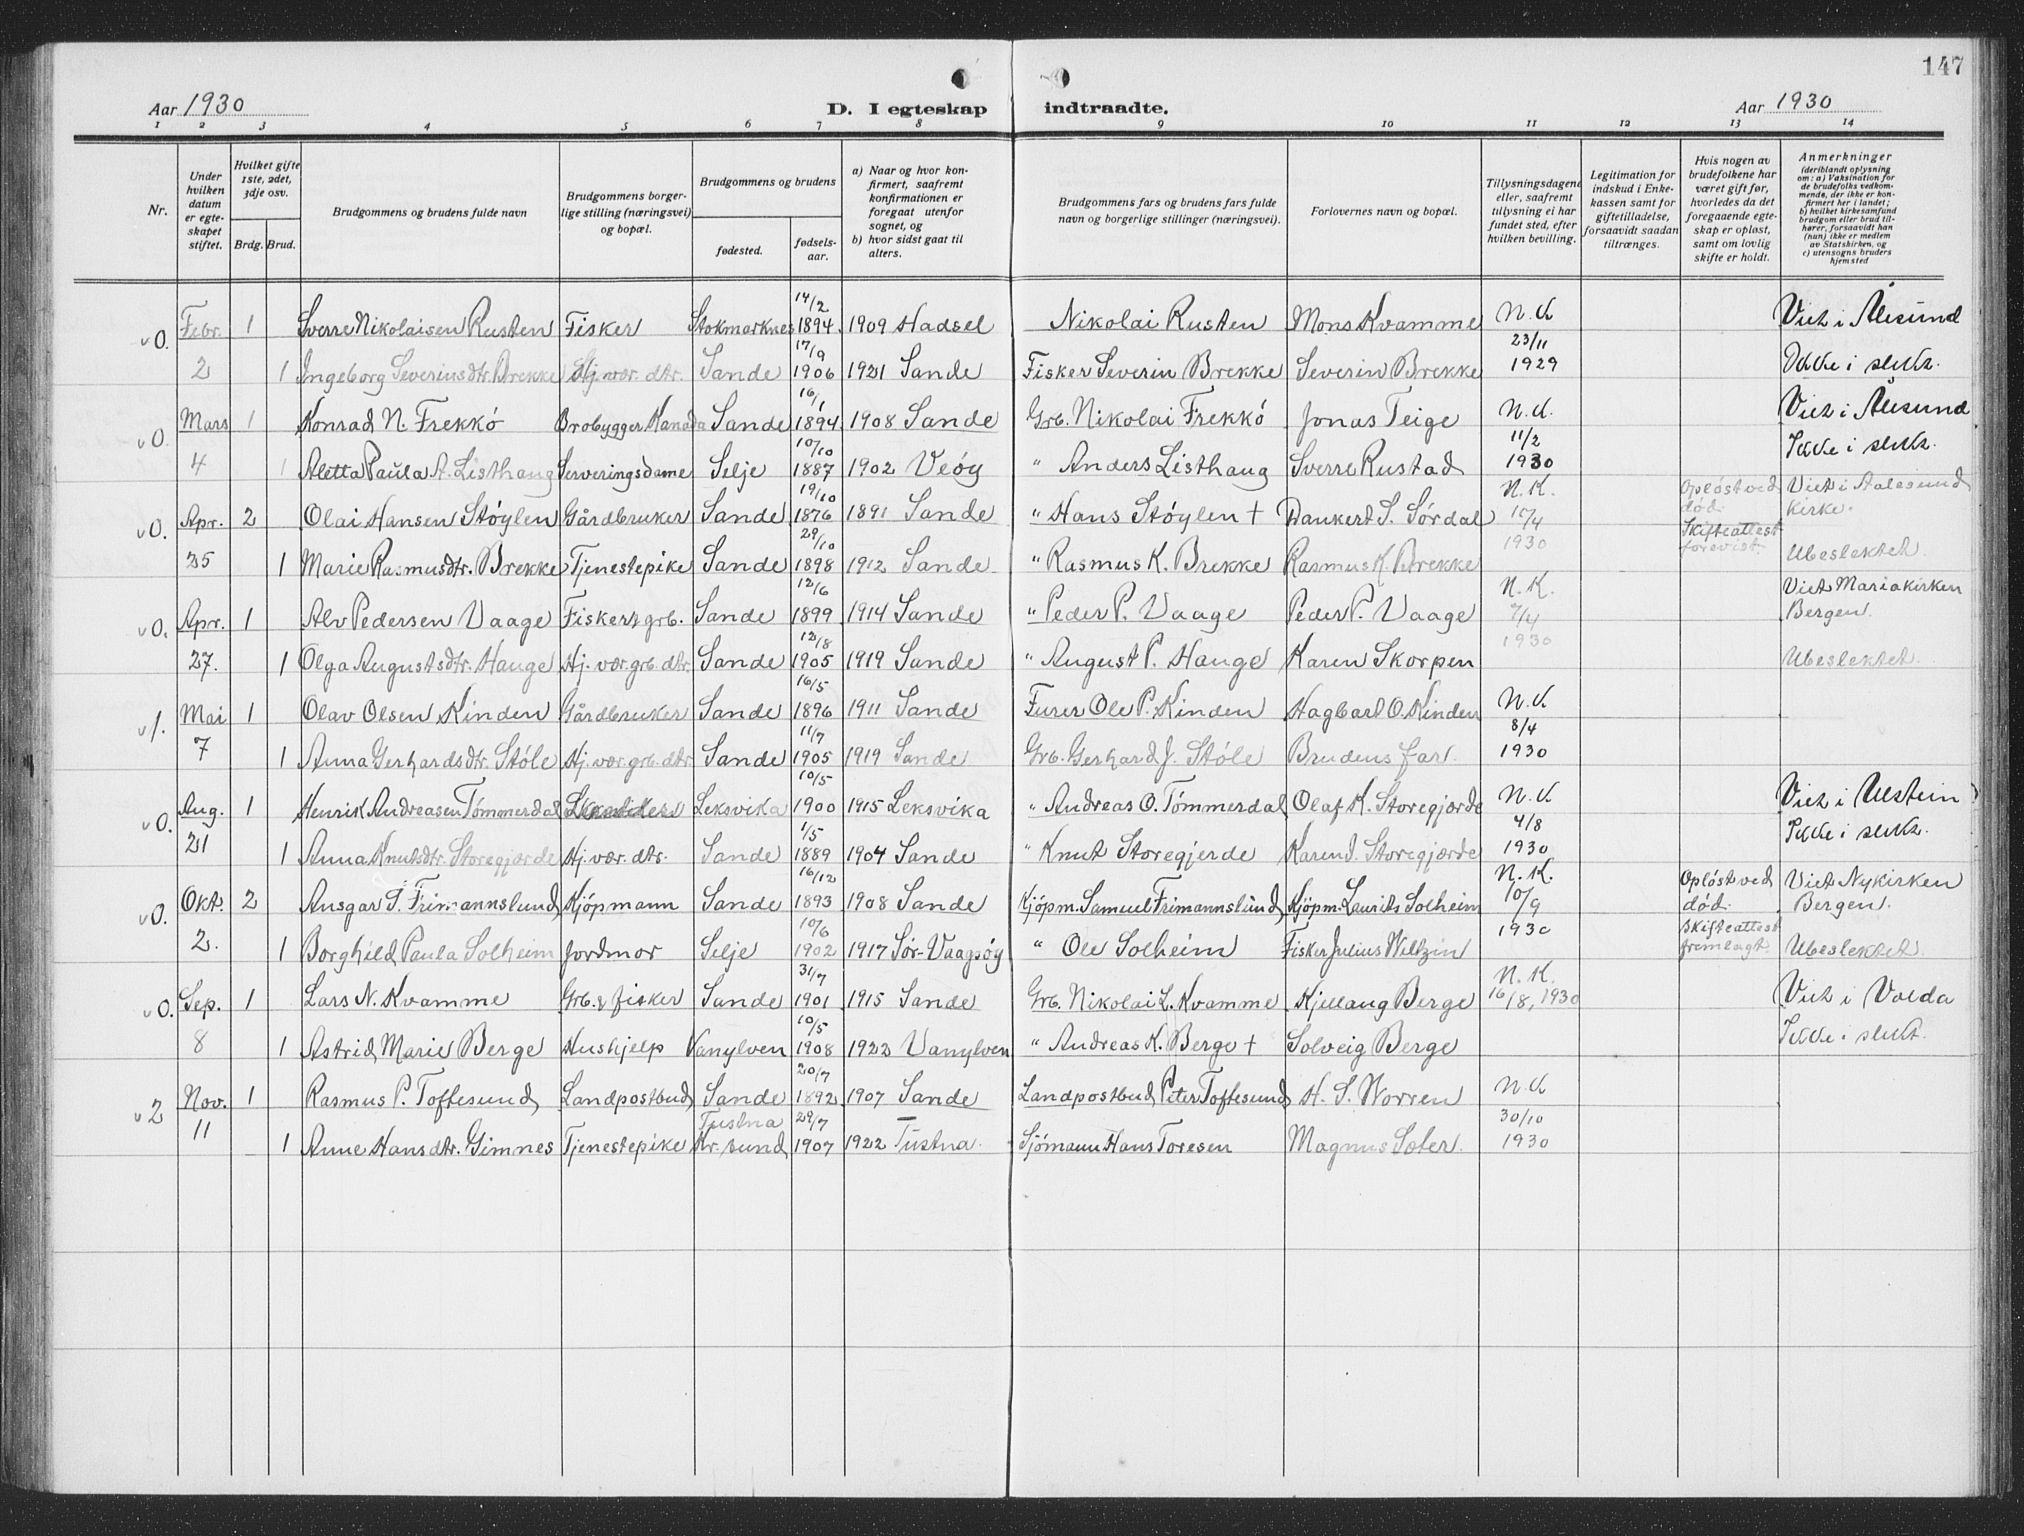 147
Aar 1930 D. I egteskap indtraadte. Aar 1930
1 2 3 4 5 6 7 8 9 10 11 12 13 14
Nr.
Under hvilken datum er egte-skapet stiftet.
Hvilket gifte 1ste, 2det, 3dje osv.
Brdg. Brud.
Brudgommens og brudens fulde navn
Brudgommens borger-lige stilling (næringsvei) og bopæl.
Brudgommens og brudens
fødested. fødsels-aar.
a) Naar og hvor kon-firmert, saafremt konfirmationen er foregaat utenfor sognet, og
b) hvor sidst gaat til alters.
Brudgommens fars og brudens fars fulde navn og borgerlige stillinger (næringsvei).
Forlovernes navn og bopæl.
Tillysningsdagene eller, saafremt tillysning ei har fundet sted, efter hvilken bevilling.
Legitimation for indskud i Enke-kassen samt for giftetilladelse, forsaavidt saadan tiltrænges.
Hvis nogen av brudefolkene har været gift før, hvorledes da det foregaaende egte-skap er opløst, samt om lovlig skifte er holdt.
Anmerkninger (deriblandt oplysning om: a) Vaksination for de brudefolks vedkom-mende, der ikke er kon-firmert her i landet; b) hvilket kirkesamfund brudgom eller brud til-hører, forsaavidt han (hun) ikke er medlem av Statskirken, og c) utensogns bruders hjemsted
v 0. Febr. 1 Sverre Nikolaisen Rusten Fisker Stokmarknes 14/2 1894 1909 Hadsel Nikolai Rusten Mons Kvamme N.K. Viet i Ålesund
2 1 Ingeborg Severinsdtr. Brekke Hj. vær. dtr. Sande 17/9 1906 1921 Sande Fisker Severin Brekke Severin Brekke 23/11 1929 Ikke i slekt.
v 0. Mars 1 Konrad N. Frekkó Brobygger Kanada Sande 16/1 1894 1908 Sande Grb. Nikolai Frekkó Jonas Teige N.K. Viet i Ålesund
4 1 Aletta Paula A. Listhaug Serveringsdame Selje 10/10 1887 1902 Veóy " Anders Listhaug Sverre Rustad 11/2 1930 Ikke i slekt.
v 0. Apr. 2 Olai Hansen Støylen Gårdbruker Sande 19/10 1876 1891 Sande " Hans Støylen + Dankert S. Sórdal N.K. Opløst ved død. Viet i Aalesund Kirke.
25 1 Marie Rasmusdtr. Brekke Tjenestepike Sande 29/10 1898 1912 Sande " Rasmus K. Brekke Rasmus K. Brekke 1930 Skifteattest forevist. Ubeslektet.
v 0. Apr. 1 Alv Pedersen Vaage Fisker & grb. Sande 12/6 1899 1914 Sande " Peder P. Vaage Peder P. Vaage N.K. 7/4 Viet Mariakirken Bergen.
27. 1 Olga Augustsdtr. Hauge Hj. vær. grb. dtr. Sande 12/8 1905 1919 Sande " August P. Hauge Karen Skorpen 1930 Ubeslektet.
v 1. Mai 1 Olav Olsen Kinden Gårdbruker Sande 16/5 1896 1911 Sande Furer Ole P. Kinden Hagbart O. Kinden N.K.
7 1 Anna Gerhardsdtr. Støle Hj. vær. grb. dtr. Sande 11/7 1905 1919 Sande Grb. Gerhard J. Støle Brudens far. 8/4 1930
v 0. Aug. 1 Henrik Andreasen Tómmerdal Leksvika 10/5 1900 1915 Leksvika " Andreas O. Tómmerdal Olaf K. Storegjerde N.K. Viet i Ulstein
21 1 Anna Knutsdtr. Storegjerde Hj. vær. dtr. Sande 1/5 1889 1904 Sande " Knut Storegjerde Karen J. Storegjerde 4/8 1930 Ikke i slekt.
v 0. Okt. 2 Ansgar S. Frimannslund Kjópmann Sande 16/12 1893 1908 Sande Kjópm. Samuel Frimannslund Kjópm. Laurits Solheim N.K. 10/9 Opløst ved død. Viet Nykirken Bergen.
2. 1 Borghild Paula Solheim Jordmor Selje 10/6 1902 1917 Sór-Vaagsóy " Ole Solheim Fisker Julius Weltzin 1930 Skifteattest fremlagt. Ubeslektet.
v 0. Sep. 1 Lars N. Kvamme Grb. & fisker Sande 31/7 1901 1915 Sande Grb. Nikolai L. Kvamme Kjellaug Berge N.K. 16/8, 1930 Viet i Volda
8 1 Astrid Marie Berge Hushjelp Vanylven 10/5 1908 1922 Vanylven " Andreas K. Berge + Solveig Berge Ikke i slekt.
v 2 Nov. 1 Rasmus P. Toftesund Landpostbud Sande 20/7 1892 1907 Sande Landpostbud Peter Toftesund H. S. Worren N.K.
11 1 Anne Hansdtr. Gimnes Tjenestepike Tustna Kr. sund 29/7 1907 1922 Tustna. Sjómann Hans Toresen Magnus Sæter. 30/10 1930